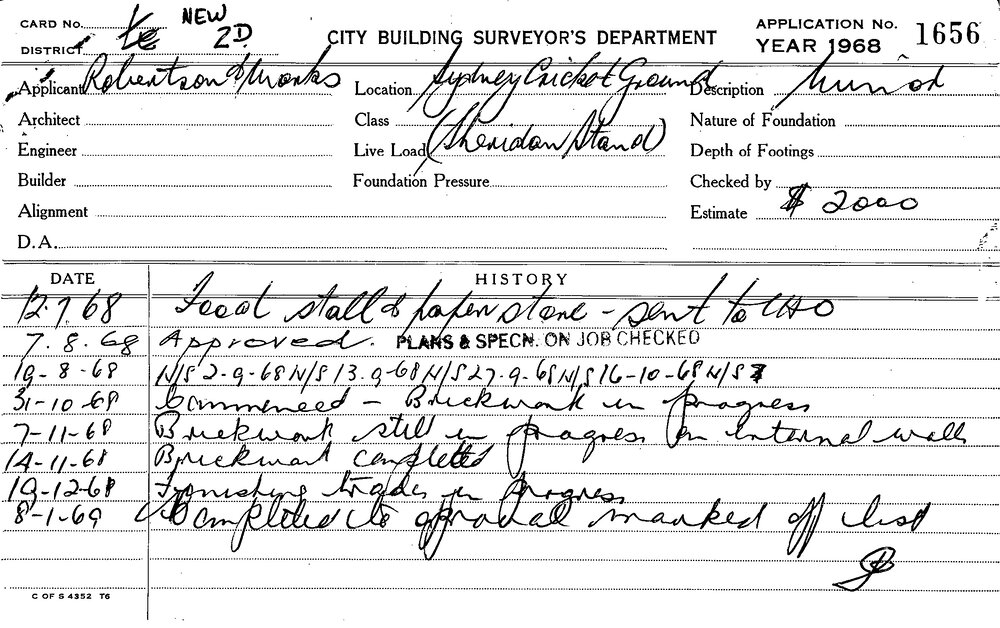 CARD No. NEW
DISTRICT 2D.
CITY BUILDING SURVEYOR'S DEPARTMENT
APPLICATION No. 1656
YEAR 1968
Applicant Robertson & Marks Location Sydney Cricket Ground Description Minor
Architect Class (Sheridan Stand) Nature of Foundation
Engineer Live Load Depth of Footings
Builder Foundation Pressure Checked by
Alignment Estimate $ 2000
D.A.
DATE HISTORY
12.7.68 Food stall & paper store - sent to CHO
7.8.68 Approved. PLANS & SPECN. ON JOB CHECKED
19-8-68 N/S 2-9-68 N/S 13-9-68 N/S 27-9-68 N/S 16-10-68 N/S
31-10-68 Commenced - Brickwork in progress
7-11-68 Brickwork still in progress on internal walls
14-11-68 Brickwork completed
19-12-68 Finishing trades in progress
8-1-69 Completed to approval marked off list
C OF S 4352 T6